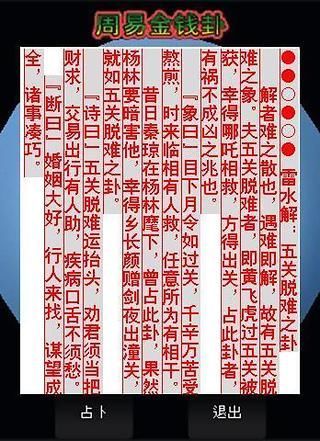 周易金钱卦
●●○●○● 雷水解：五关脱难之卦
解者难之散也，遇难即解，故有五关脱
难之象。夫五关脱难者，即黄飞虎过五关被
获，幸得哪吒相救，方得出关，占此卦者，
有祸不成凶之兆也。
『象曰』目下月令如过关，千辛万苦受
熬煎，时来临相有人救，任意所为有相干。
昔日秦琼在杨林麾下，曾占此卦，果然
杨林要暗害他，幸得乡长颜赠剑夜出潼关，
就如五关脱难之卦。
『诗曰』五关脱难运抬头，劝君须当把
财求，交易出行有人助，疾病口舌不须愁。
『断曰』婚姻大好，行人来找，谋望成
全，诸事凑巧。
占卜
退出